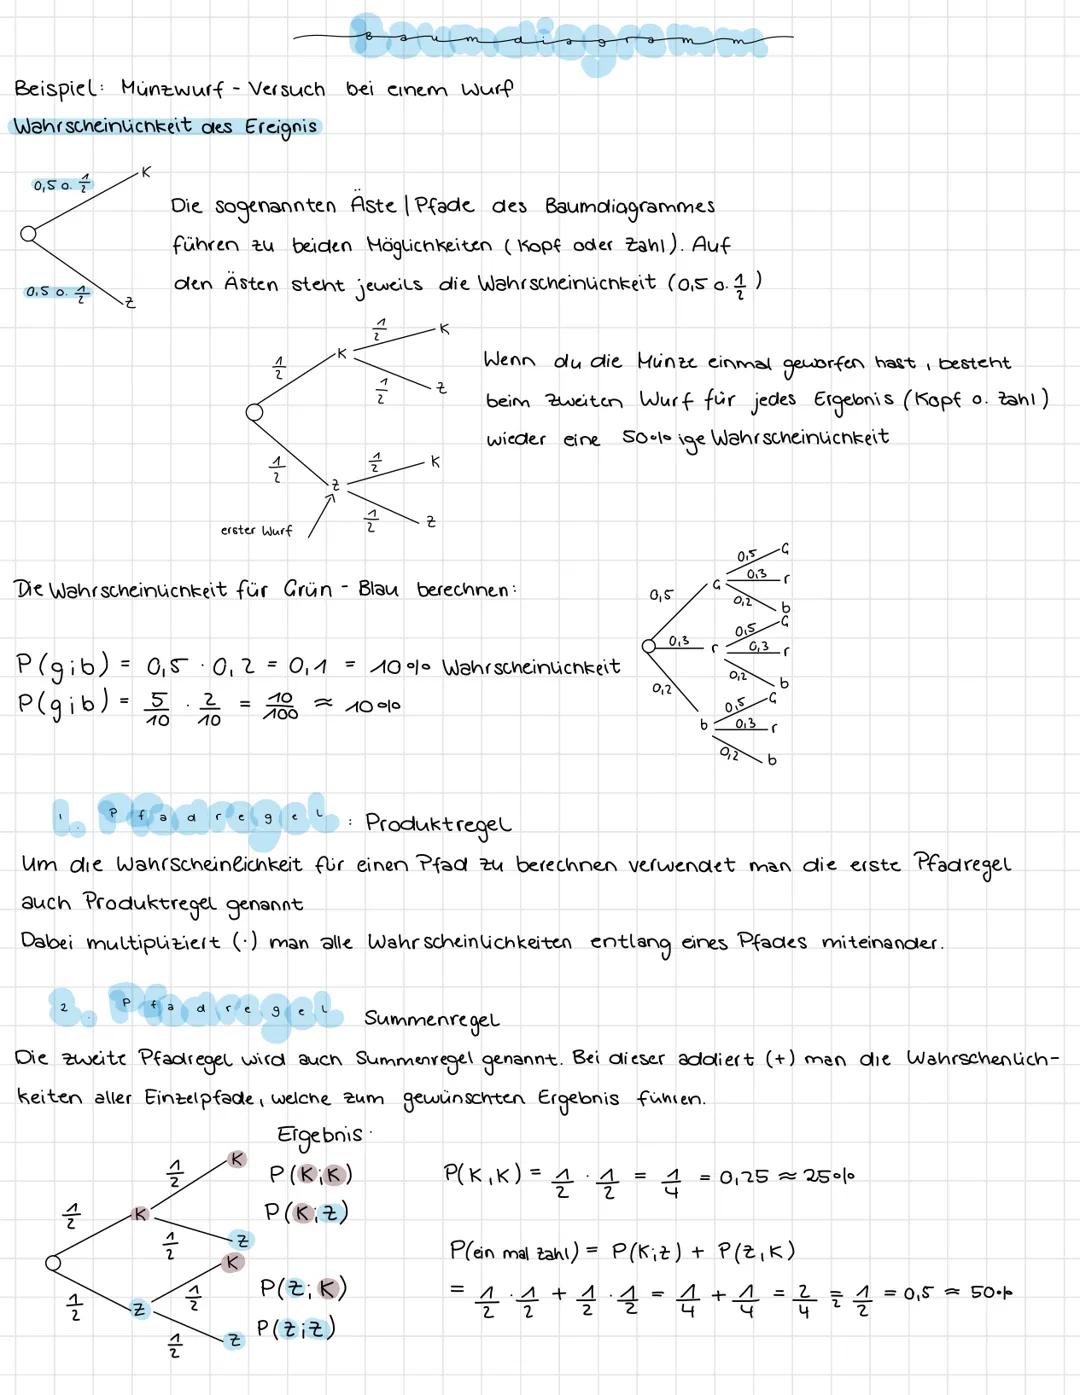 Baumdiagramm
Beispiel: Münzwurf - Versuch bei einem Wurf
Wahrscheinlichkeit des Ereignis
0,5 o. 1/2
K
0,5 o. 1/2
Z
Die sogenannten Äste | Pfade des Baumdiagrammes
führen zu beiden Möglichkeiten (Kopf oder Zahl). Auf
den Ästen steht jeweils die Wahrscheinlichkeit (0,5 o. 1/2)
1/2 K 1/2 K
1/2 Z
1/2 Z 1/2 K
1/2 Z
erster Wurf
Wenn du die Münze einmal geworfen hast, besteht
beim zweiten Wurf für jedes Ergebnis (Kopf o. Zahl)
wieder eine 50% ige Wahrscheinlichkeit
Die Wahrscheinlichkeit für Grün - Blau berechnen:
P(g;b) = 0,5 · 0,2 = 0,1 = 10% Wahrscheinlichkeit
P(g;b) = 5/10 · 2/10 = 10/100 ≈ 10%
0,5 G 0,5 G
0,3 r
0,2 b
0,3 r 0,5 G
0,3 r
0,2 b
0,2 b 0,5 G
0,3 r
0,2 b
1. Pfadregel : Produktregel
Um die Wahrscheinlichkeit für einen Pfad zu berechnen verwendet man die erste Pfadregel
auch Produktregel genannt
Dabei multipliziert (·) man alle Wahrscheinlichkeiten entlang eines Pfades miteinander.
2. Pfadregel Summenregel
Die zweite Pfadregel wird auch Summenregel genannt. Bei dieser addiert (+) man die Wahrschenlich-
keiten aller Einzelpfade, welche zum gewünschten Ergebnis führen.
Ergebnis
1/2 K 1/2 K P(K;K)
1/2 Z P(K;Z)
1/2 Z 1/2 K P(Z;K)
1/2 Z P(Z;Z)
P(K,K) = 1/2 · 1/2 = 1/4 = 0,25 ≈ 25%
P(ein mal Zahl) = P(K;Z) + P(Z,K)
= 1/2 · 1/2 + 1/2 · 1/2 = 1/4 + 1/4 = 2/4 = 1/2 = 0,5 ≈ 50%